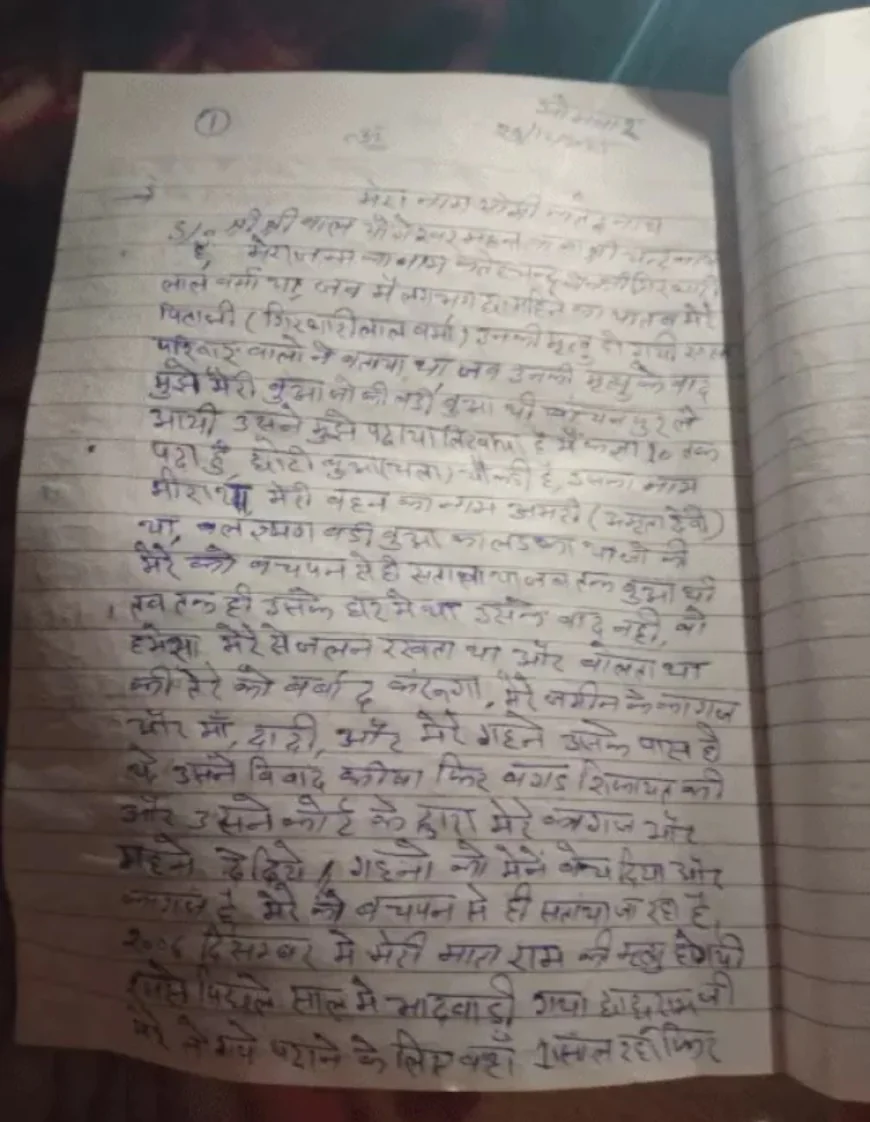 ①
ॐ
सोमवार
मेरा नाम योगी नाथ
S/o श्री श्री बाल योगेश्वर महन्त श्री चन्दनाथ
है, मेरा जन्म का नाम
लाल वर्मा था, जब मैं लगभग छः महिने का था तब मेरे
पिताजी (गिरधारीलाल वर्मा) उनकी मृत्यु हो गयी
परिवार वालो ने बताया था जब उनकी मृत्यु के बाद
मुझे मेरी बुआ जो की बडी बुआ थी ले
आयी उसने मुझे पढाया लिखाया है मैं कक्षा 10 तक
पढा हुँ, छोटी बुआ है, उसका नाम
मीरा था, मेरी बहन का नाम अमरी (अमृता देवी)
था, बडी बुआ का लडका था जो की
मेरे को बचपन से ही सताता था जब तक बुआ थी
तब तक ही उसके घर मे था उसके बाद नही, वो
हमेसा मेरे से जलन रखता था और बोलता था
की तेरे को बर्बाद करुंगा, मेरे जमीन के कागज
और माँ, दादी, और मेरे गहने उसके पास है
थे उसने विवाद कीया फिर बगड शिकायत की
और उसने कोर्ट के द्वारा मेरे कागज और
गहने दे दिये, गहनो को मैनें बेच दिया और
कागज है मेरे को बचपन से ही सताया जा रहा है,
दिसम्बर मे मेरी माता राम की मृत्यु होगयी
पिछले साल मे भादवाड़ी गया जी
मेरे ले गये पढाने के लिए वहाँ 1 साल रहा फिर